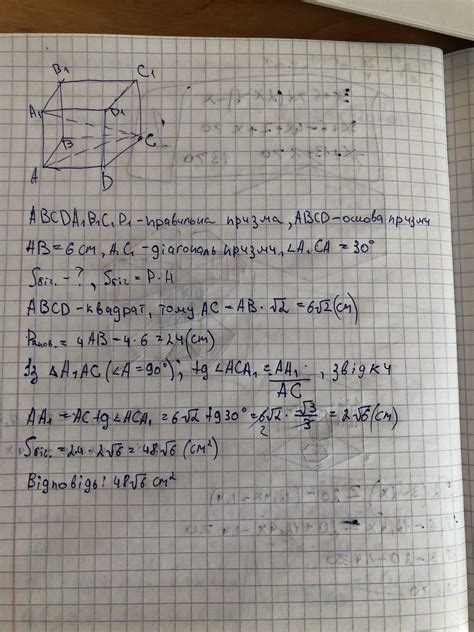 B₁ C₁
A₁ D₁
B C
A D
ABCDA₁B₁C₁D₁ - правильна призма, ABCD - основа призми
AB = 6 cm, A₁C - діагональ призми, ∠A₁CA = 30°
Sбіг. - ?, Sбіг = P · H
ABCD - квадрат, тому AC = AB · √2 = 6√2 (cm)
Pоснов. = 4AB = 4 · 6 = 24 (cm)
Із ΔA₁AC (∠A = 90°); tg ∠ACA₁ = AA₁/AC, звідки
AA₁ = AC tg ∠ACA₁ = 6√2 tg 30° = 6√2 · √3/3 = 2√6 (cm)
Sбіг. = 24 · 2√6 = 48√6 (cm²)
Відповідь: 48√6 cm²